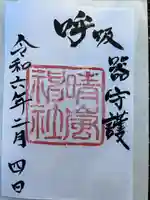 呼吸器守護
晴嵐
社
令和六年二月四日